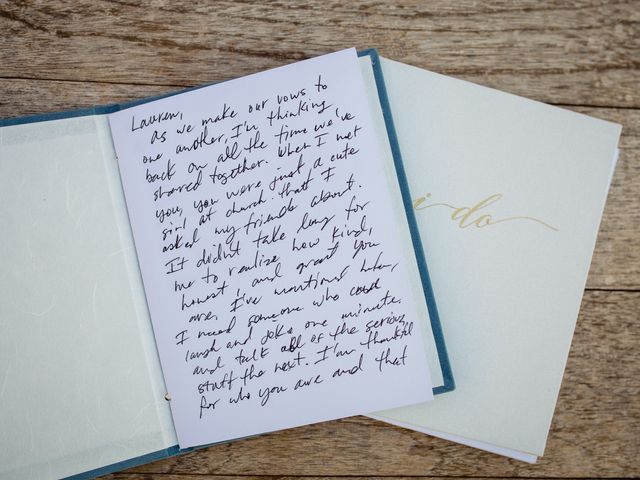 Lauren,
As we make our vows to
one another, I'm thinking
back on all the time we've
shared together. When I met
you, you were just a cute
girl at church that I
asked my friends about.
It didn't take long for
me to realize how kind,
honest, and great you
are. I've mentioned before,
I need someone who could
laugh and joke one minute,
and talk all of the serious
stuff the next. I'm thankful
for who you are and that
i do